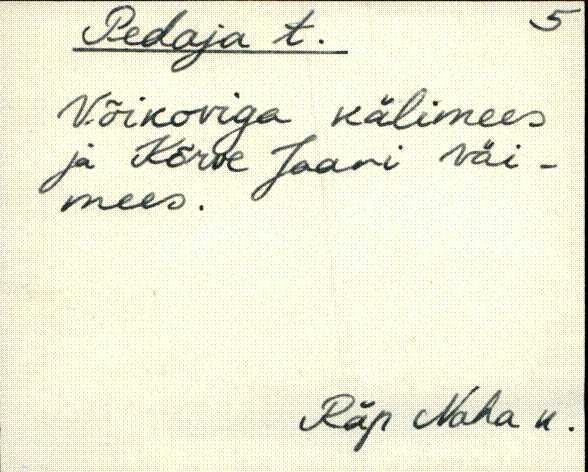 Pedaja t. 5
Võikoviga kälimees
ja Kõrve Jaani väi-
mees.
Räp Naha k.